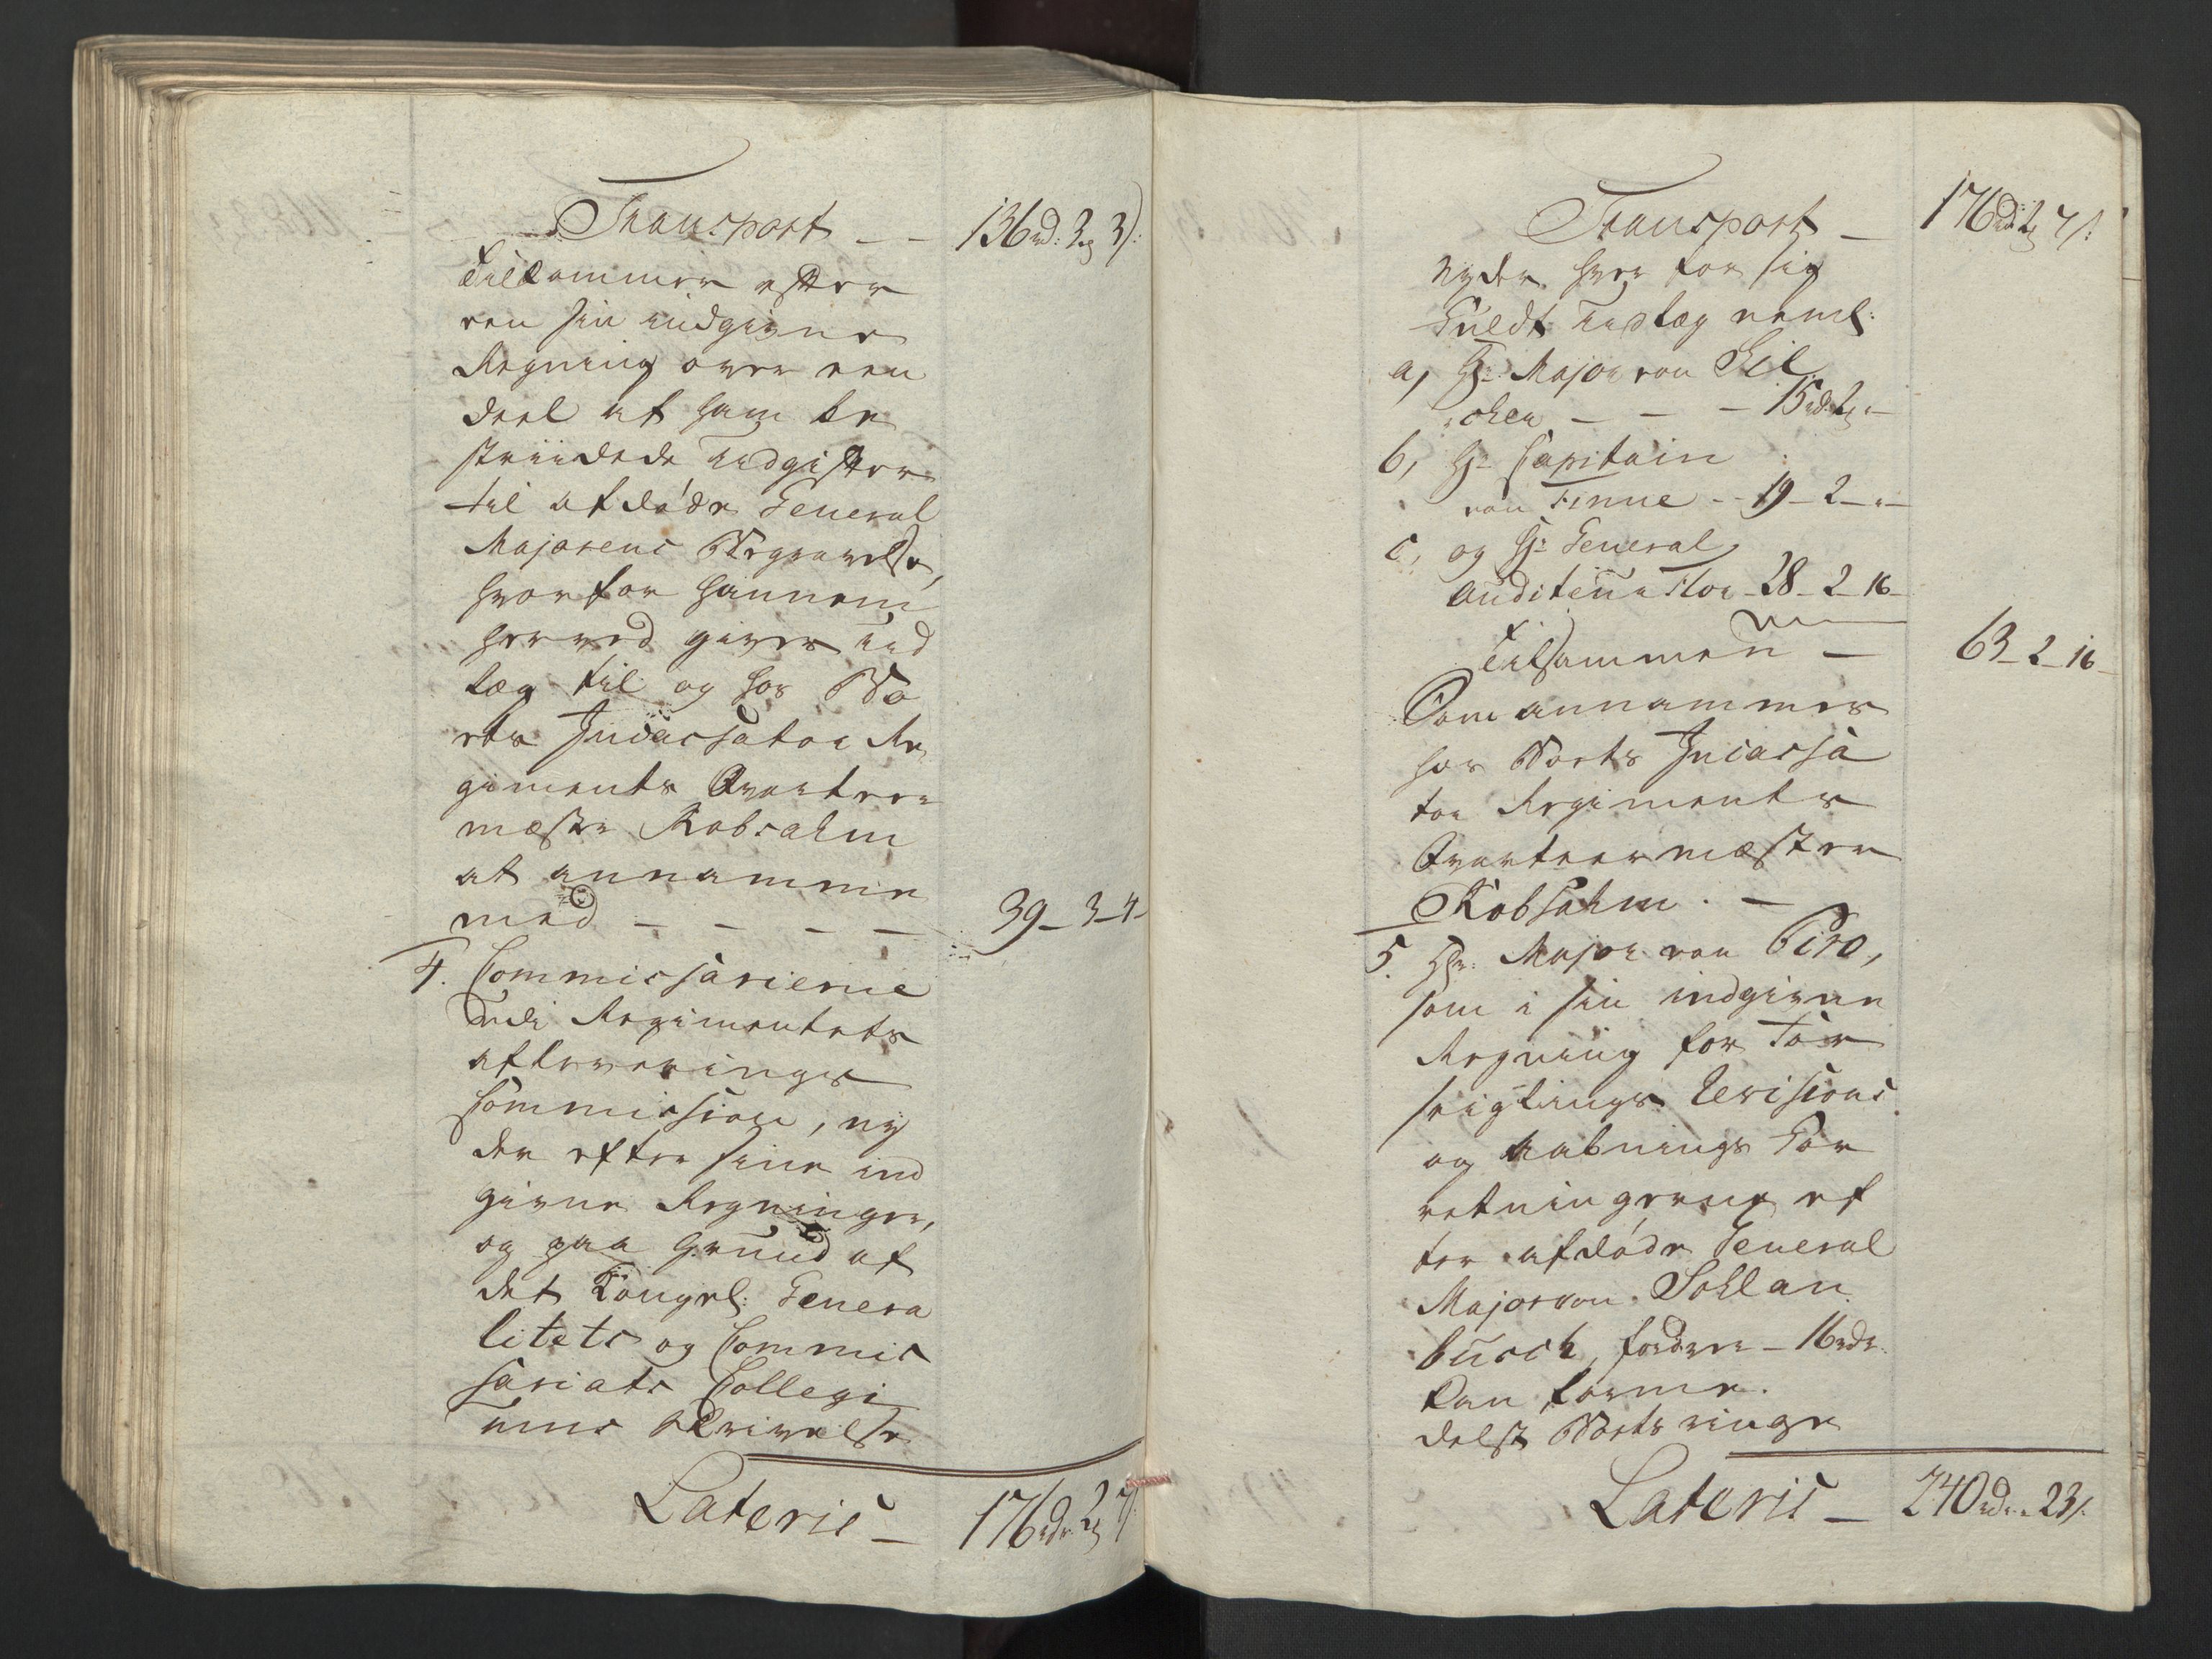 Transport - - 136 rd: 3 ℳ 3 ß:
Tilkommer efter
en sin indgivne
Regning over een
deel af ham be
striidede Udgifter
til afdøde General
Majorens Begravelse,
hvorfor hannem
herved gives ud
læg til og hos Bo
ets Incassator Re
giments Qvarteer
mester Robsahm
at annamme
med - - - - 39 - 3 - 4 -
4. Commissarierne
udi Regimentets
afleverings
Commission, ny
der efter sine ind
givne Regninger,
og paa Grund af
det Kongel: Genera
litets og Commis
sariats Collegi
ums Skrivelse
Lateris - 176 rdr 2 ℳ 7 ß
Transport - 176 rd 2 ℳ 7 ß:
nyder hver for sig
Fuldt udlæg neml:
a, Hr: Major von Sil
chen - - - 15 rd 2 ℳ " -
b, Hr: Capitain
von Finne - - 19 - 2 - " -
c, og Hr: General
Auditeur Flor - 28 - 2 - 16 -
Tilsammen - 63 - 2 - 16 -
Som annammes
hos Boets Incassa
tor Regiments
Qvarteermester
Robsahm. -
5. Hr: Major von Piro,
som i sin indgivne
Regning for For
seiglings Revisions
og aabnings For
retningerne ef
ter afdøde General
Major von Sohlan
busch, fordrer - 16 rdr.
kan forme.
delst Boets ringe
Lateris - 240 rd " 23 ß.